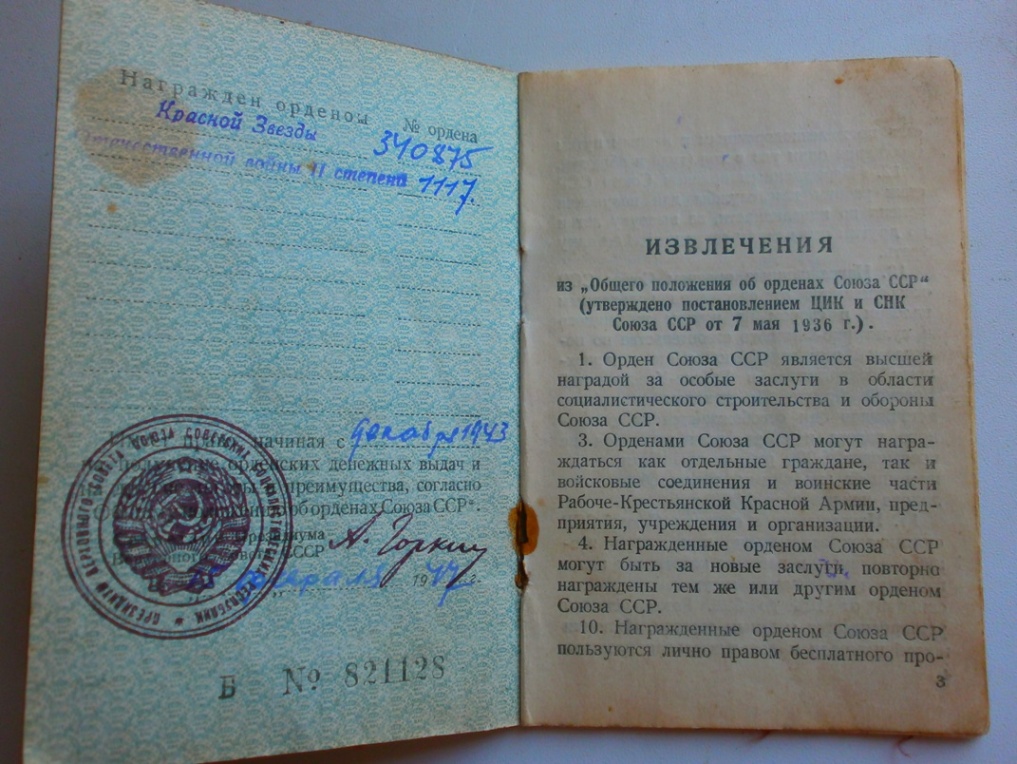 Награжден орденом № ордена
Красной Звезды 340875
Отечественной войны II степени 1117.
начиная с декабря 1943
получение орденских денежных выдач и
преимущества, согласно
об орденах Союза ССР".
Президиума
СССР А. Горкин
февраля 1947 г.
ПРЕЗИДИУМ ВЕРХОВНОГО СОВЕТА СОЮЗА СОВЕТСКИХ СОЦИАЛИСТИЧЕСКИХ РЕСПУБЛИК
Б № 821128
ИЗВЛЕЧЕНИЯ
из „Общего положения об орденах Союза ССР“
(утверждено постановлением ЦИК и СНК
Союза ССР от 7 мая 1936 г.).
1. Орден Союза ССР является высшей
наградой за особые заслуги в области
социалистического строительства и обороны
Союза ССР.
3. Орденами Союза ССР могут награ-
ждаться как отдельные граждане, так и
войсковые соединения и воинские части
Рабоче-Крестьянской Красной Армии, пред-
приятия, учреждения и организации.
4. Награжденные орденом Союза ССР
могут быть за новые заслуги повторно
награждены тем же или другим орденом
Союза ССР.
10. Награжденные орденом Союза ССР
пользуются лично правом бесплатного про-
3